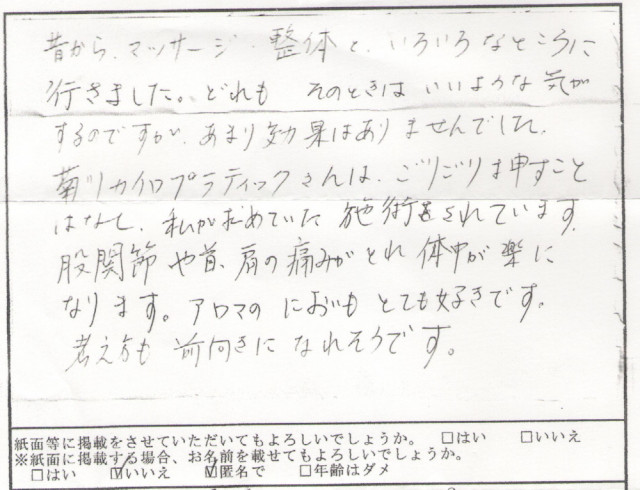 昔から、マッサージ、整体と、いろいろなところに
行きました。どれも そのときはいいような気が
するのですが、あまり効果はありませんでした。
菊川カイロプラティックさんは、ごりごり押すこと
はなく、私が求めていた施術をされています。
股関節や首、肩の痛みがとれ体中が楽に
なります。アロマのにおいもとても好きです。
考え方も前向きになれそうです。
紙面等に掲載をさせていただいてもよろしいでしょうか。 □はい □いいえ
※紙面に掲載する場合、お名前を載せてもよろしいでしょうか。
□はい ☑いいえ ☑匿名で □年齢はダメ